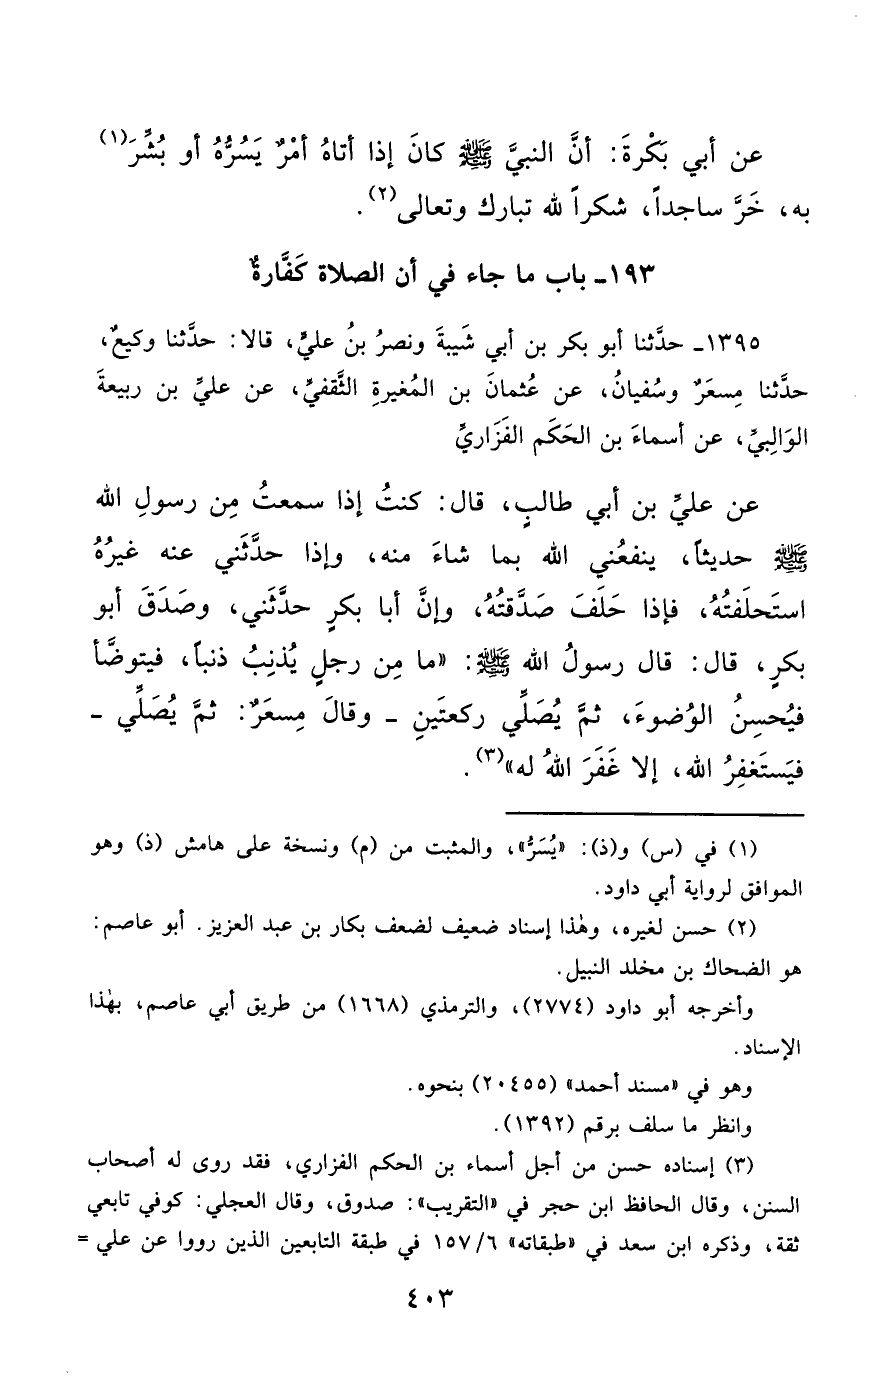 عن أبي بَكْرةَ: أنَّ النبيَّ ﷺ كانَ إذا أتاهُ أمْرٌ يَسُرُّهُ أو بُشِّرَ(١)
به، خَرَّ ساجداً، شكراً لله تبارك وتعالى(٢).
١٩٣ـ باب ما جاء في أن الصلاة كَفَّارةٌ
١٣٩٥ـ حدَّثنا أبو بكر بن أبي شَيبةَ ونصرُ بنُ عليٍّ، قالا: حدَّثنا وكيعٌ،
حدَّثنا مِسعَرٌ وسُفيانُ، عن عُثمانَ بن المُغيرةِ الثَّقفيِّ، عن عليِّ بن ربيعةَ
الوَالِبيِّ، عن أسماءَ بن الحَكَم الفَزَاريِّ
عن عليِّ بن أبي طالبٍ، قال: كنتُ إذا سمعتُ مِن رسولِ الله
ﷺ حديثاً، ينفعُني الله بما شاءَ منه، وإذا حدَّثَني عنه غيرُهُ
استَحلَفتُهُ، فإذا حَلَفَ صَدَّقتُهُ، وإنَّ أبا بكرٍ حدَّثَني، وصَدَقَ أبو
بكرٍ، قال: قال رسولُ الله ﷺ: «ما مِن رجلٍ يُذنِبُ ذنباً، فيتوضَّأ
فيُحسِنُ الوُضوءَ، ثمَّ يُصَلِّي ركعتَينِ ـ وقالَ مِسعَرٌ: ثمَّ يُصَلِّي ـ
فيَستَغفِرُ الله، إلا غَفَرَ اللهُ له»(٣).
(١) في (س) و(ذ): «يُسَرُّ»، والمثبت من (م) ونسخة على هامش (ذ) وهو
الموافق لرواية أبي داود.
(٢) حسن لغيره، وهٰذا إسناد ضعيف لضعف بكار بن عبد العزيز. أبو عاصم:
هو الضحاك بن مخلد النبيل.
وأخرجه أبو داود (٢٧٧٤)، والترمذي (١٦٦٨) من طريق أبي عاصم، بهٰذا
الإسناد.
وهو في «مسند أحمد» (٢٠٤٥٥) بنحوه.
وانظر ما سلف برقم (١٣٩٢).
(٣) إسناده حسن من أجل أسماء بن الحكم الفزاري، فقد روى له أصحاب
السنن، وقال الحافظ ابن حجر في «التقريب»: صدوق، وقال العجلي: كوفي تابعي
ثقة، وذكره ابن سعد في «طبقاته» ٦/١٥٧ في طبقة التابعين الذين رووا عن علي =
٤٠٣